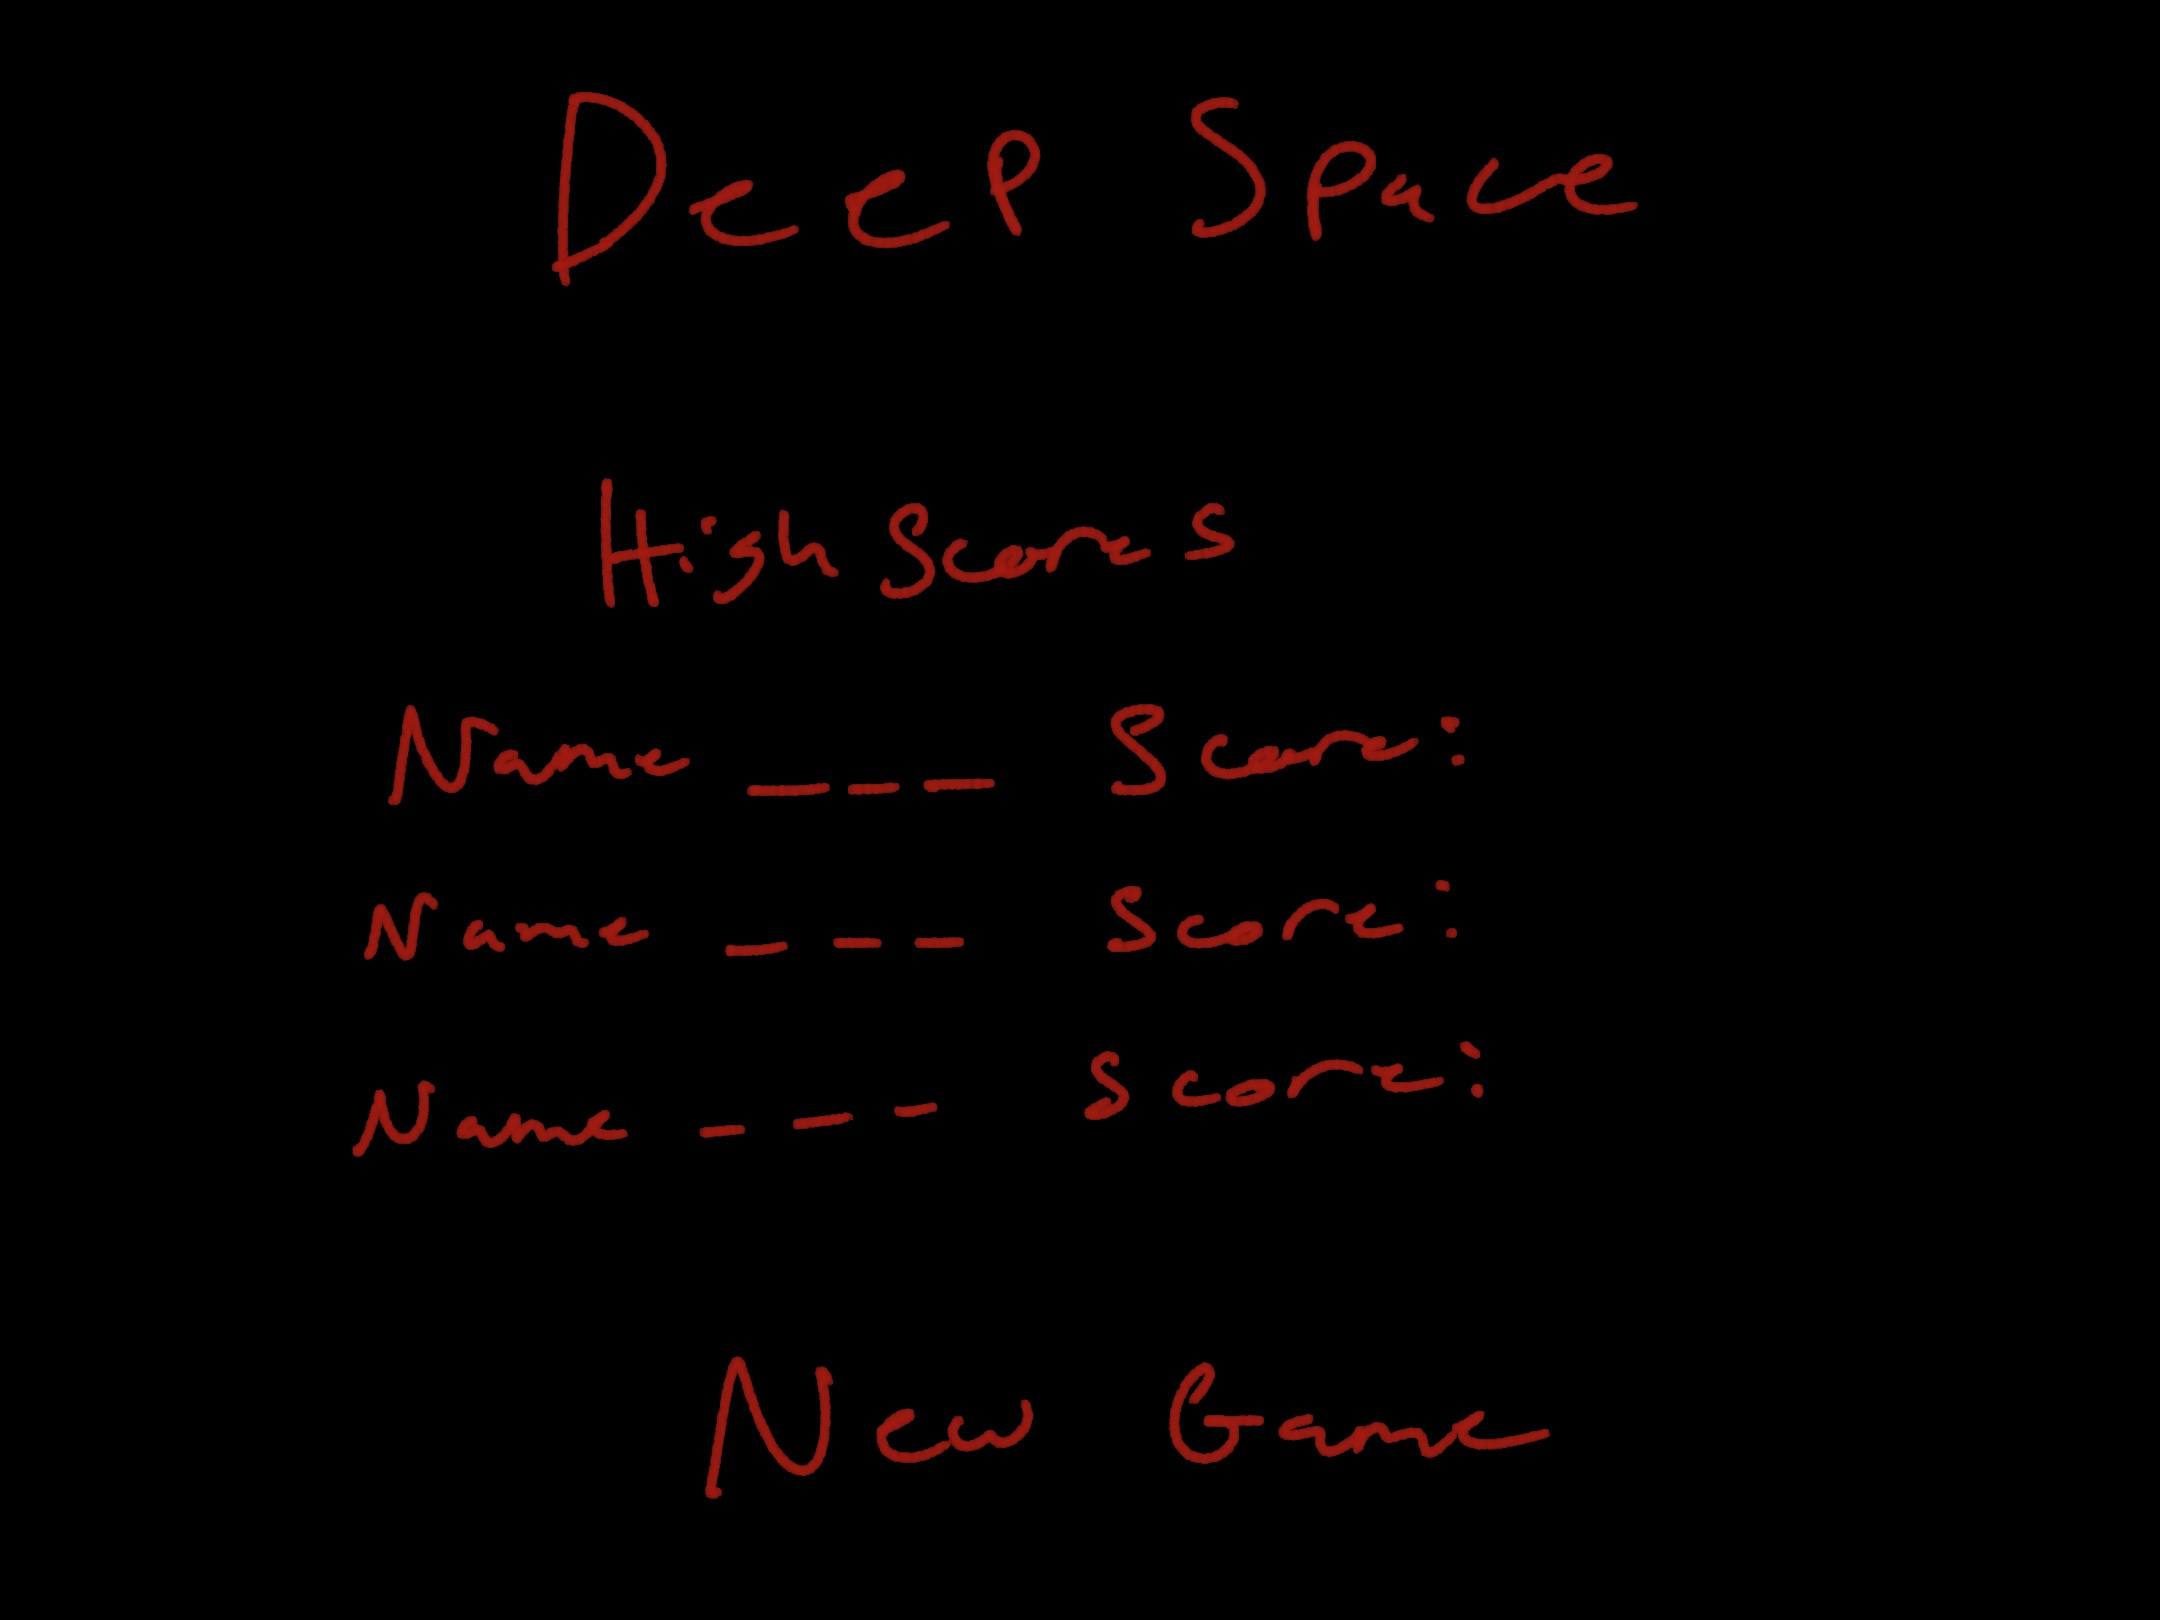 Deep Space
High Scores
Name _ _ _ Score:
Name _ _ _ Score:
Name _ _ _ Score:
New Game